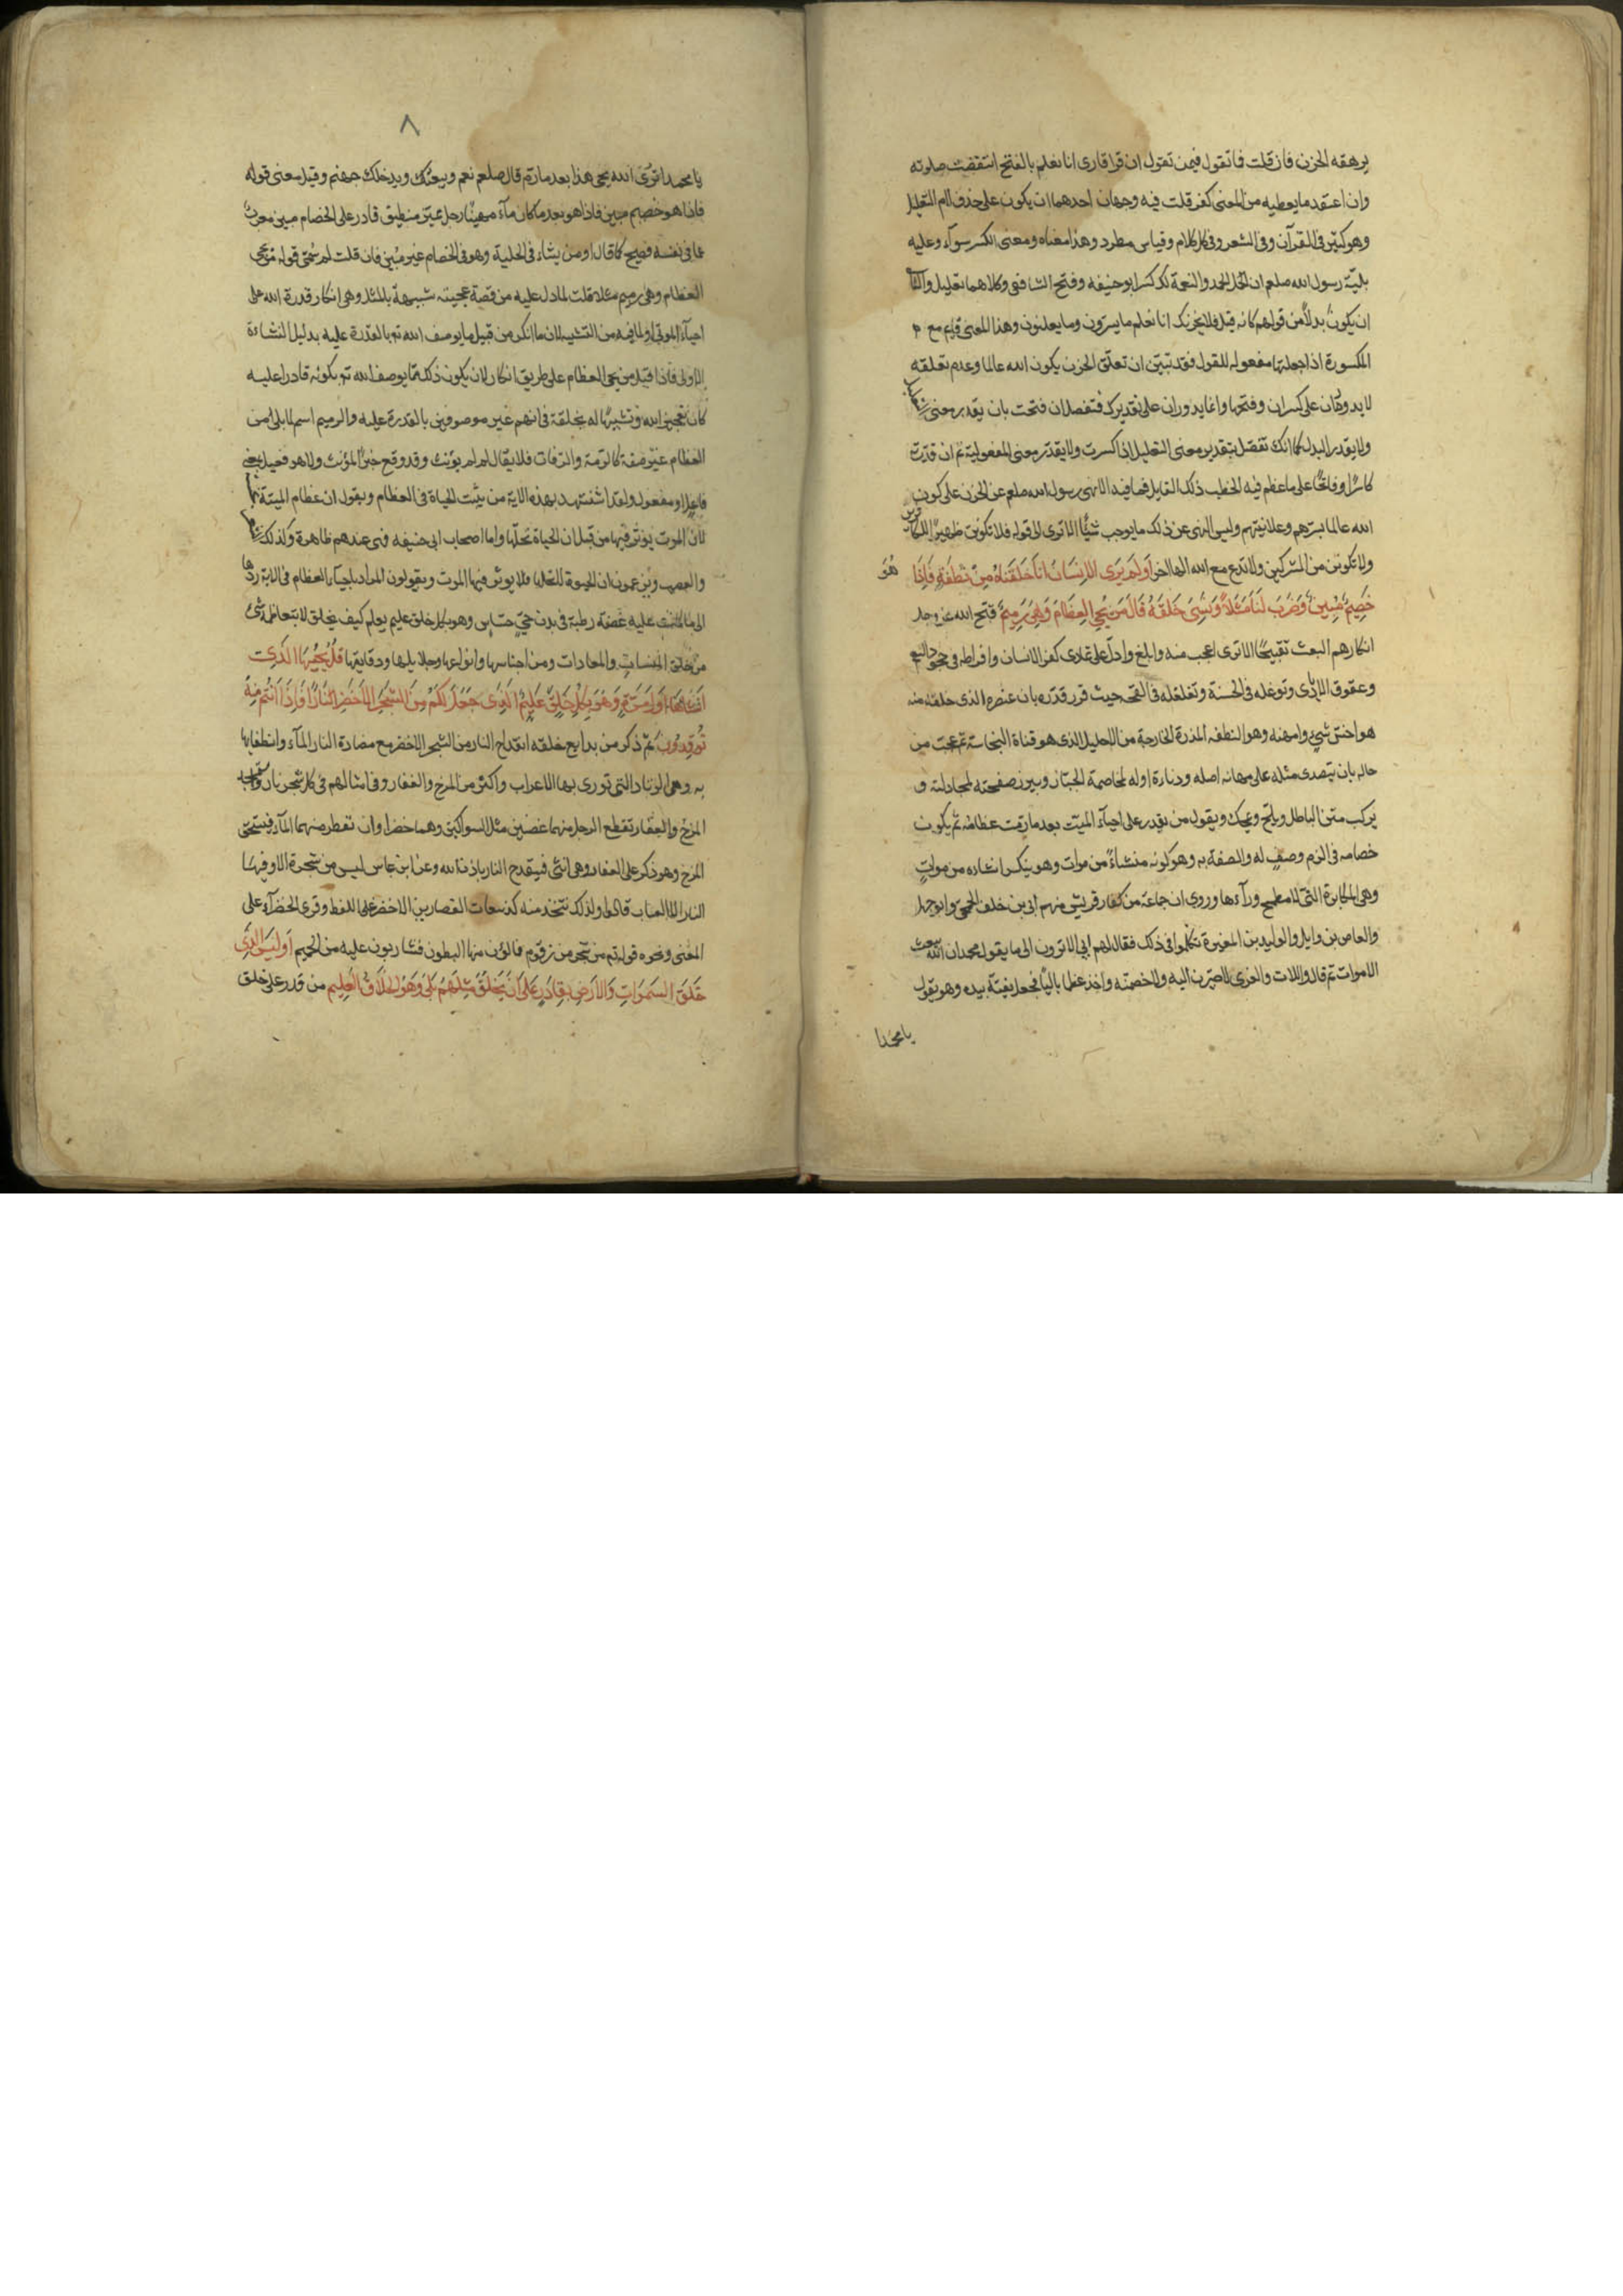 يرهقه الحزن فان قلت فما تقول فيمن تقول ان قرا قارى انا نعلم بالفتح انتقضت صلوته
وان اعتقد ما يعطيه من المعنى كفر قلت فيه وجهان احدهما ان يكون على حذف لام التعليل
وهو كثير فى القرآن وفى الشعر وفى كل كلام وقياس مطرد وهذا معناه ومعنى الكسر سوآء وعليه
تلبية رسول الله صلعم ان الحمد والنعمة لك كسر ابو حنيفه وفتح الشافعى وكلاهما تعليل والثانى
ان يكون بدلاً من قولهم كانه قيل فلا يحزنك انا نعلم ما يسرون وما يعلنون وهذا المعنى قايم مع
المكسورة اذا جعلتها مفعوله للقول فقد تبين ان تعلق الحزن بكون الله عالما وعدم تعلقه
لا يدوران على كسران وفتحها وانما يدوران على تقديرك فتفصل ان فتحت بان يقدر معنى
ولا يقدر البدل كما انك تفصل بتقدير معنى التعليل اذا كسرت ولا يقدر معنى المفعولية ثم ان قدرت
كاسرًا او فاتحًا على ما عظم فيه الخطب ذلك القايل فما فيه الا نهى رسول الله صلعم عن الحزن على كون
الله عالما بسرهم وعلانيتهم وليس النهى عن ذلك ما يوجب شيئًا الا ترى الى قوله فلا تكونن ظهيرًا للكافرين
ولا تكونن من المشركين ولا تدع مع الله الها اخر اَوَلَمْ يَرَى الاِنسَانُ اَنَّا خَلَقْنَاهُ مِنْ نُطْفَةٍ فَاِذَا هُوَ
خَصِيمٌ مُبِينٌ وَضَرَبَ لَنَا مَثَلاً وَنَسِىَ خَلْقَهُ قَالَ مَنْ يُحْيِ الْعِظَامَ وَهِىَ رَمِيمٌ قبح الله عز وجل
انكارهم البعث تقبيحًا الا ترى اعجب منه وابلغ وادل على تمادى كفر الانسان وافراطه فى جحود النعم
وعقوق الايادى وتوغله فى الخسة وتغلغله فى القحه حيث قرر قدره بان عنصره الذى خلقه منه
هو اخس شىء وامهنه وهو النطفه المذرة الخارجة من الاحليل الذى هو قناة النجاسة ثم عجب من
حاله بان يتصدى مثله على مهانه اصله ودناءة اوله لمخاصمة الجبار ويبرز صفحته لمجادلته و
يركب متن الباطل ويلج ويمحك ويقول من يقدر على احيآء الميت بعد ما رمت عظامه ثم يكون
خصامه فى الزم وصف له والصفة به وهو كونه منشاءً من موات وهو ينكر انشاءه من مواتٍ
وهى المكابرة التى لا مطمح ورآءها وروى ان جماعة من كفار قريش منهم ابى بن خلف الجمحى وابو جهل
والعاص بن وايل والوليد بن المغيرة تكلموا فى ذلك فقال لهم ابى الا ترون الى ما يقول محمد ان الله يبعث
الاموات ثم قال واللات والعزى لاصيرن اليه ولاخصمنه واخذ عظما باليًا فجعل يفته بيده وهو يقول
يا محمد ا
٨
يا محمد اترى الله يحى هذا بعد ما رم قال صلعم نعم ويبعثك ويدخلك جهنم وقيل معنى قوله
فاذا هو خصيم مبين فاذا هو بعد ما كان مآء مهينًا رجل مميز منطيق قادر على الخصام مبين معرب
عما فى نفسه فصيح كما قال او من ينشاء فى الحلية وهو فى الخصام غير مبين فان قلت لم سمى قوله من يحى
العظام وهى رميم مثلا قلت لما دل عليه من قصة عجيبته شبيهة بالمثل وهى انكار قدرة الله على
احيآء الموتى او لما فيه من التشبيه لان ما انكر من قبيل ما يوصف الله تع بالقدرة عليه بدليل النشاءة
الاولى فاذا قيل من يحى العظام على طريق انكار لان يكون ذلك مما يوصف الله تع بكونه قادرا عليه
كان تعجيز الله وتشبيهًا له بخلقه فى انهم غير موصوفين بالقدرة عليه والرميم اسم لما بلى من
العظام غير صفة كالرمة والرفات فلا يقال لم لم يؤنث وقد وقع خبرًا لمؤنث ولا هو فعيل بمعنى
فاعل او مفعول ولقد استشهد بهذه الاية من يثبت الحياة فى العظام ويقول ان عظام الميتة
لان الموت يوثر فيها من قبل ان الحياة تحلها واما اصحاب ابى حنيفه فهى عندهم طاهرة وكذلك
والعصب ويزعمون ان الحيوة لا تحلها فلا يوثر فيها الموت ويقولون المراد باحيآء العظام فى الاية ردها
الى ما كانت عليه غضة رطبة فى بدن حىّ حساس وهو بكل خلق عليم يعلم كيف يخلق لا يتعاظمه شئ
من خلق المنشات والمعادات ومن اجناسها وانواعها وجلايلها ودقايقها قُلْ يُحْيِيهَا الَّذِى
اَنْشَاَهَا اَوَّلَ مَرَّةٍ وَهُوَ بِكُلِّ خَلْقٍ عَلِيمٌ الَّذِى جَعَلَ لَكُمْ مِنَ الشَّجَرِ الاَخْضَرِ نَارًا فَاِذَا اَنْتُمْ مِنْهُ
تُوقِدُونَ ثم ذكر من بدايع خلقه انقداح النار من الشجر الاخضر مع مضادة النار المآء وانطفايها
به وهى الزناد التى تورى بها الاعراب واكثر من المرخ والعفار وفى امثالهم فى كل شجر نار واستمجد
المرخ والعفار تقطع الرجل منهما غصنين مثل السواكين وهما خضراوان تقطر منهما المآء فيسحق
المرخ وهو ذكر على العفار وهى انثى فينقدح النار باذن الله وعن ابن عباس ليس من شجرة الا وفيها
النار الا العناب قالوا ولذلك تتخذ منه كذينقات القصارين الاخضر على اللفظ وقرى الخضرآء على
المعنى ونحوه قوله تع من شجر من زقوم فمالؤن منها البطون فشاربون عليه من الحميم اَوَلَيْسَ الَّذِى
خَلَقَ السَّمَوَاتِ وَالاَرْضَ بِقَادِرٍ عَلَى اَنْ يَخْلُقَ مِثْلَهُمْ بَلَى وَهُوَ الْخَلاَّقُ الْعَلِيم من قدر على خلق